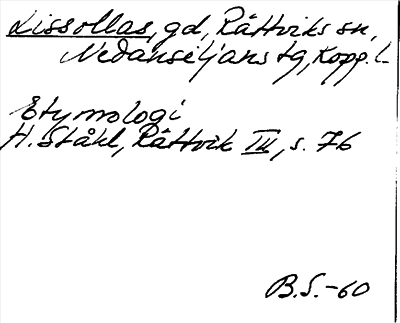 Lissollas, gd, Rättviks sn,
Nedansiljans tg, Kopp. l.
Etymologi
H. Ståhl, Rättvik III, s. 76
B.S.-60